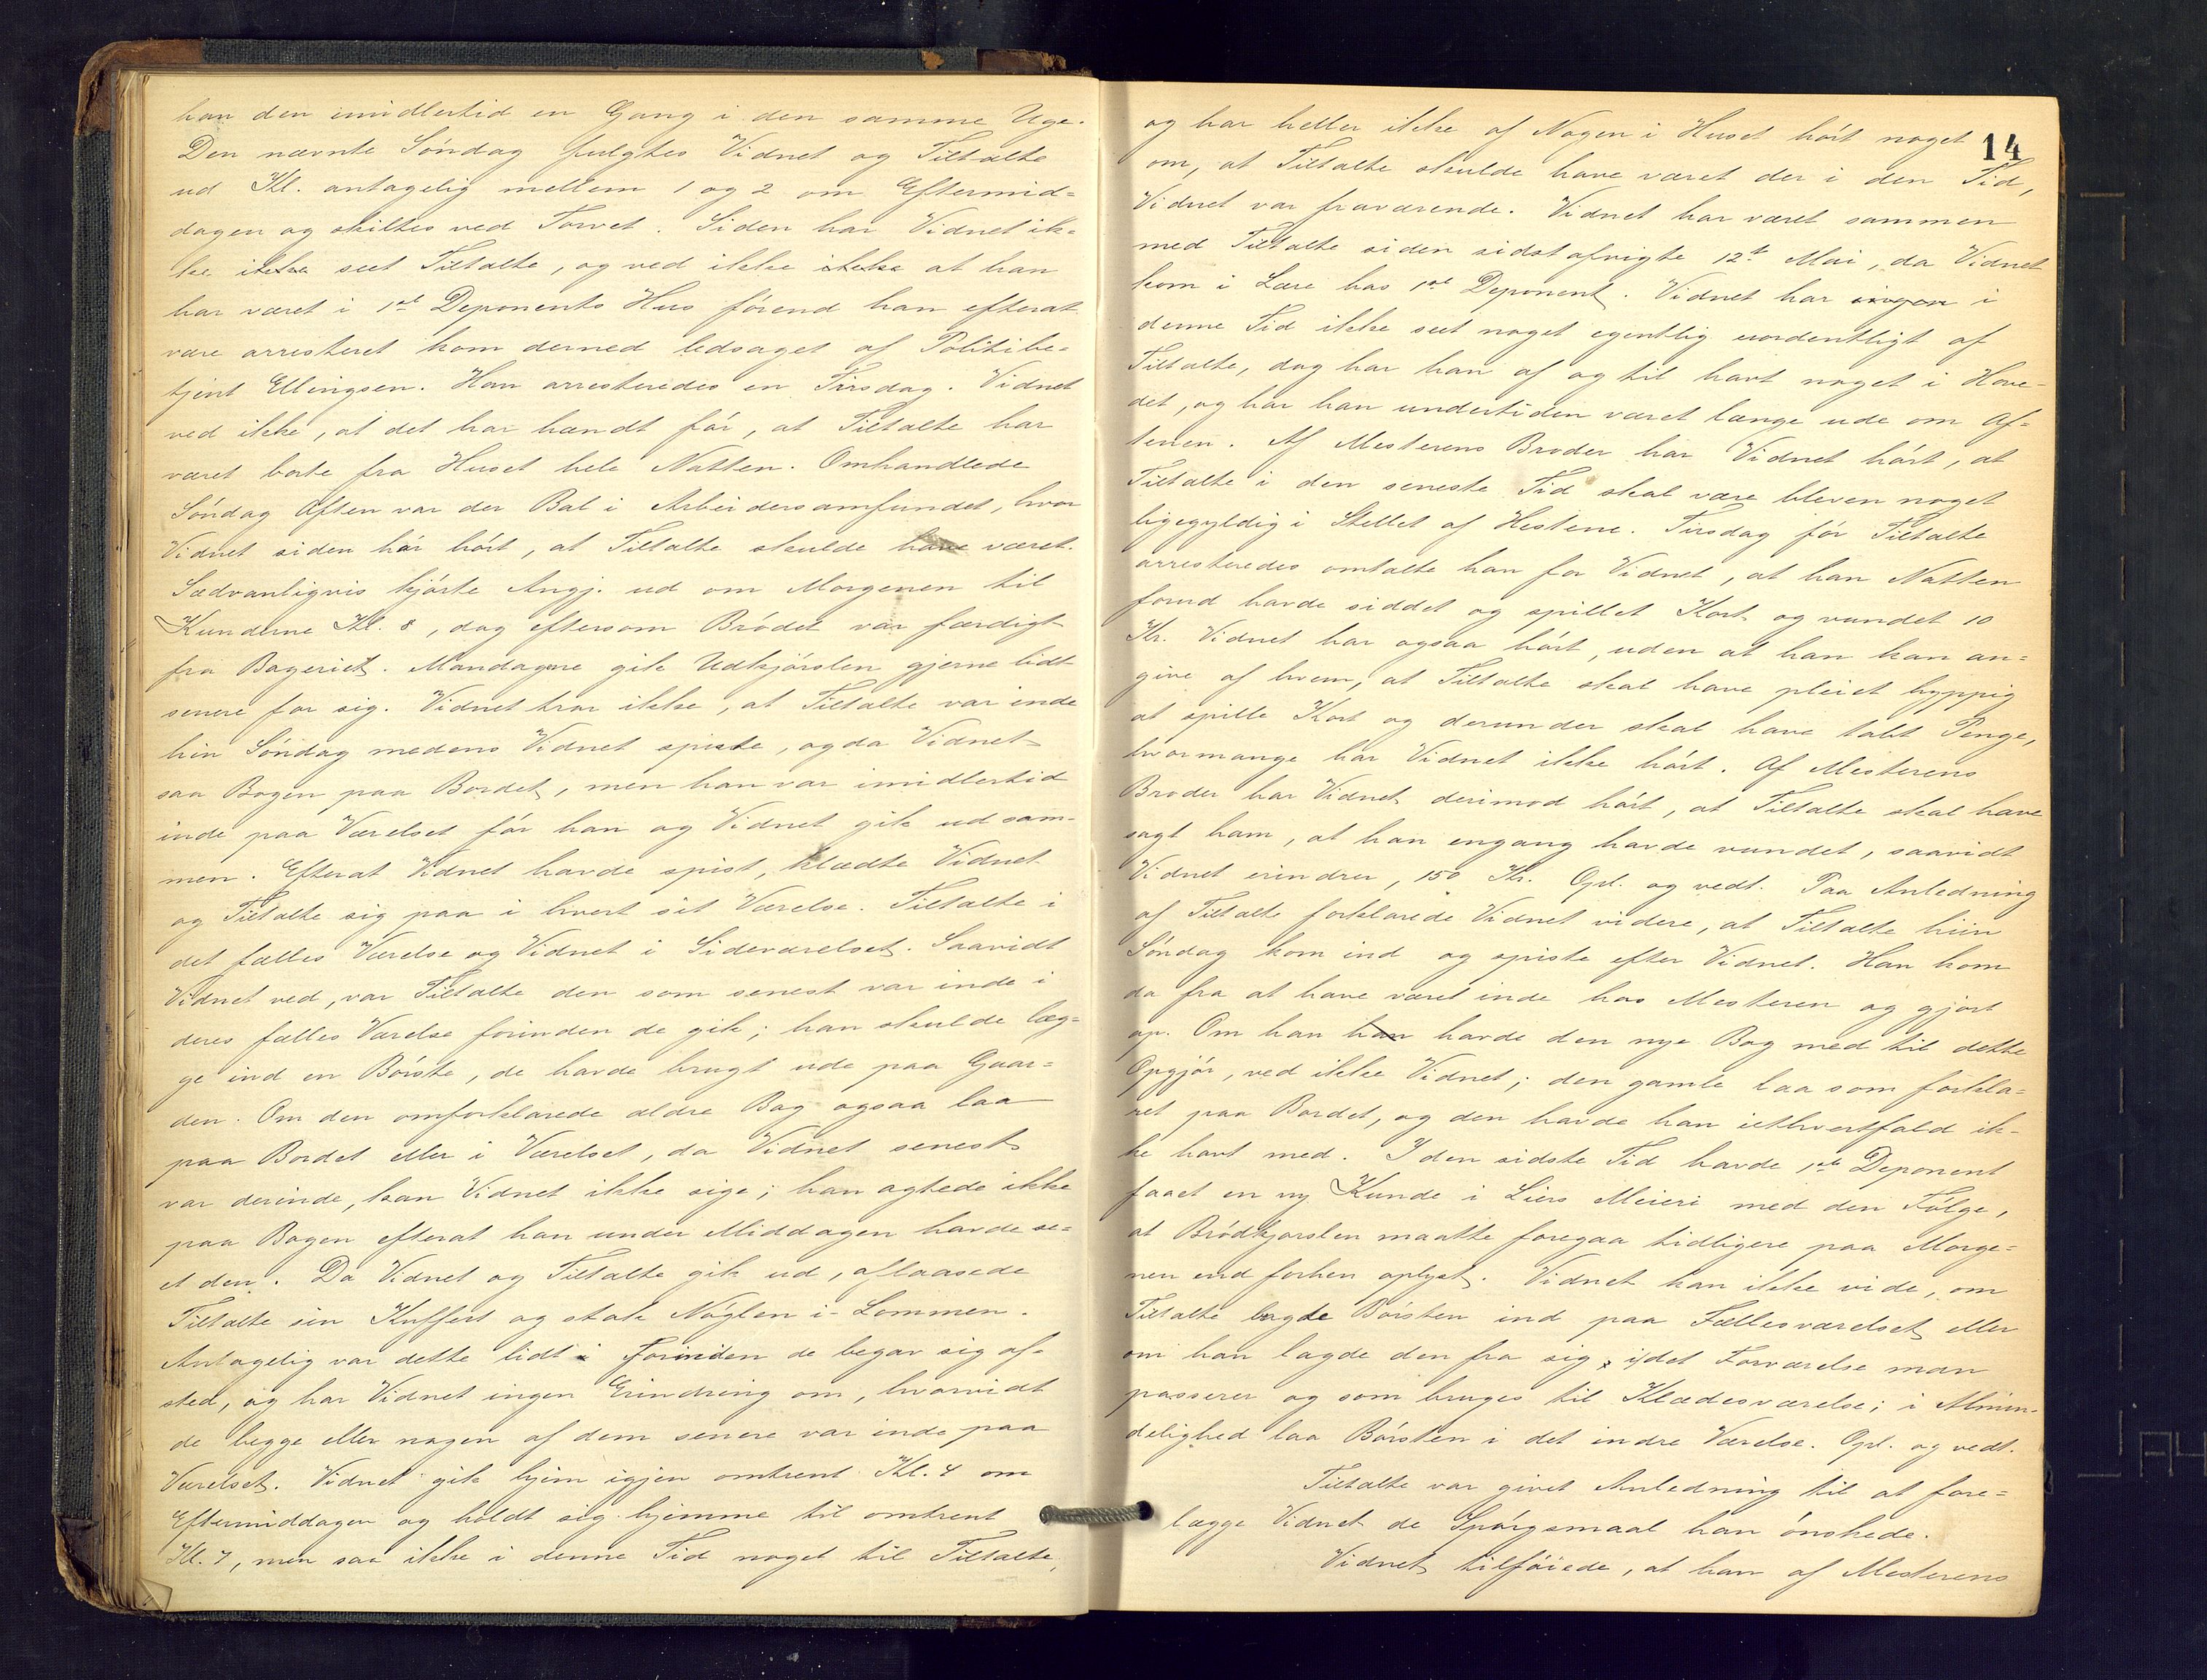 han den imidlertid en Gang i den samme Uge.
Den nævnte Søndag fulgtes Vidnet og Tiltalte
ud Kl. antagelig mellem 1 og 2 om Eftermid=
dagen og skiltes ved Torvet. Siden har Vidnet ik=
ke ikke seet Tiltalte, og ved ikke ikke at han
har været i 1ste Deponents Hus førend han efterat
være arresteret kom derned ledsaget af Politibe=
tjent Ellingsen. Han arresteredes en Tirsdag. Vidnet
ved ikke, at det har hændt før, at Tiltalte har
været borte fra Huset hele Natten. Omhandlede
Søndag Aften var der Bal i Arbeidersamfundet, hvor
Vidnet siden har hørt, at Tiltalte skulde have været.
Sædvanligvis kjørte Angj. ud om Morgenen til
Kunderne Kl. 8, dog eftersom Brødet var færdigt
fra Bageriet. Mandagene gik Udkjørslen gjerne lidt
senere for sig. Vidnet tror ikke, at Tiltalte var inde
hin Søndag medens Vidnet spiste, og da Vidnet
saa Bogen paa Bordet, men han var imidlertid
inde paa Værelset før han og Vidnet gik ud sam-
men. Efterat Vidnet havde spist, klædte Vidnet
og Tiltalte sig paa i hvert sit Værelse. Tiltalte i
det fælles Værelse og Vidnet i Sideværelset. Saavidt
Vidnet ved, var Tiltalte den som senest var inde i
deres fælles Værelse forinden de gik; han skulde læg=
ge ind en Børste, de havde brugt ude paa Gaar=
den. Om den omforklarede ældre Bog ogsaa laa
paa Bordet eller i Værelset, da Vidnet senest
var derinde, kan Vidnet ikke sige; han agtede ikke
paa Bogen efterat han under Middagen havde se=
et den. Da Vidnet og Tiltalte gik ud, aflaasede
Tiltalte sin Kuffert og stak Nøglen i Lommen.
Antagelig var dette lidt forinden de begav sig af=
sted, og har Vidnet ingen Erindring om, hvorvidt
de begge eller nogen af dem senere var inde paa
Værelset. Vidnet gik hjem igjen omtrent Kl. 4 om
Eftermiddagen og holdt sig hjemme til omtrent
Kl. 7, men saa ikke i denne Tid noget til Tiltalte,
14
og har heller ikke af Nogen i Huset hørt noget
om, at Tiltalte skulde have været der i den Tid,
Vidnet var fraværende. Vidnet har været sammen
med Tiltalte siden sidstafvigte 12te Mai, da Vidnet
kom i Lære hos 1ste Deponent. Vidnet har ingen i
denne Tid ikke seet noget egentlig uordentligt af
Tiltalte, dog har han af og til havt noget i Hove=
det, og har han undertiden været længe ude om Af=
tenen. Af Mesterens Broder har Vidnet hørt, at
Tiltalte i den seneste Tid skal være bleven noget
ligegyldig i Stellet af Hestene. Tirsdag før Tiltalte
arresteredes omtalte han for Vidnet, at han Natten
forud havde siddet og spillet Kort og vundet 10
Kr. Vidnet har ogsaa hørt, uden at han kan an=
give af hvem, at Tiltalte skal have pleiet hyppig
at spille Kort og derunder skal have tabt Penge,
hvormange har Vidnet ikke hørt. Af Mesterens
Broder har Vidnet derimod hørt, at Tiltalte skal have
sagt ham, at han engang havde vundet, saavidt
Vidnet erindrer, 150 Kr. Opl. og vedt. Paa Anledning
af Tiltalte forklarede Vidnet videre, at Tiltalte hiin
Søndag kom ind og spiste efter Vidnet. Han kom
da fra at have været inde hos Mesteren og gjort
op. Om han han havde den nye Bog med til dette
Opgjør, ved ikke Vidnet; den gamle laa som forkla=
ret paa Bordet, og den havde han iethvertfald ik-
ke havt med. I den sidste Tid havde 1ste Deponent
faaet en ny Kunde i Liers Meieri med den Følge,
at Brødkjørslen maatte foregaa tidligere paa Morge=
nen end forhen oplyst. Vidnet kan ikke vide, om
Tiltalte lagde Børsten ind paa Fællesværelset eller
om han lagde den fra sig i det Forværelse man
passerer og som bruges til Klædesværelse; i Almin-
delighed laa Børsten i det indre Værelse. Opl. og vedt.
Tiltalte var givet Anledning til at fore=
lægge Vidnet de Spørgsmaal han ønskede.
Vidnet tilføiede, at han af Mesterens